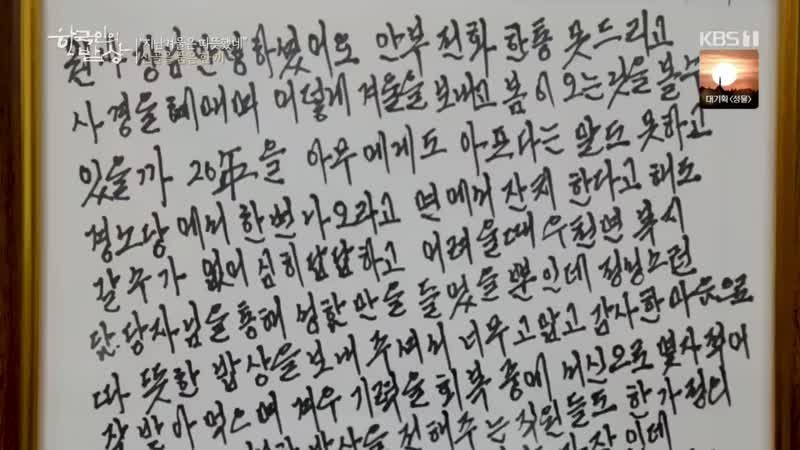 한국인의 밥상
"지난겨울은 따뜻했네"
KBS 1
대기획 <성물>
하셨어도 안부 전화 한통 못드리고
사경을 헤매며 어떻게 겨울을 보내고 봄이 오는 것을 볼수
있을까 20年을 아무에게도 아프다는 말도 못하고
경노당에서 한번 나오라고 면에서 잔치 한다고 해도
갈 수가 없어 심히 답답하고 어려울때 우천면 복지
담당자님을 통해 성함만을 들었을 뿐인데 정성스런
따뜻한 밥상을 보내 주셔서 너무 고맙고 감사한 마음으로
잘 받아 먹으며 겨우 기력을 회복 중에 서신으로 몇자 적어
밥상을 전해주는 직원들도 한 가정의
인데